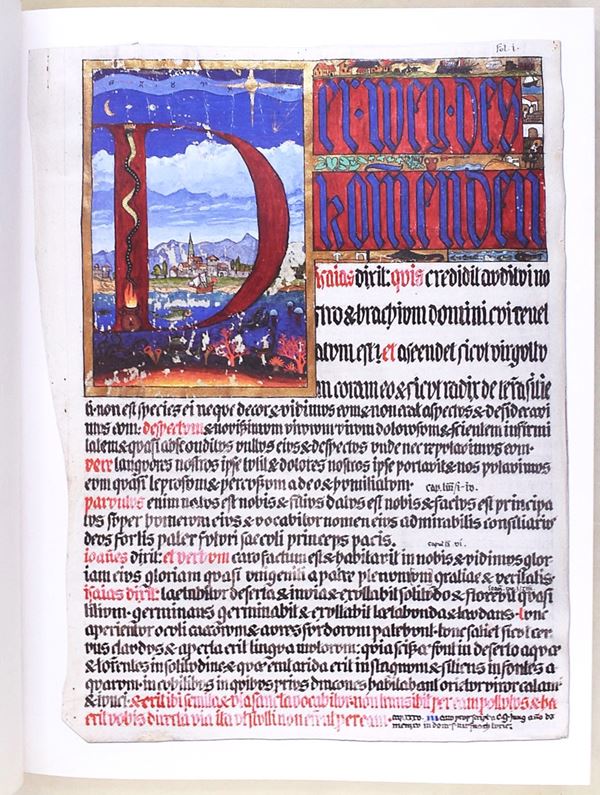 fol. i.
Der Weg des
Komenden
isaias dixit: quis credidit auditui no
stro & brachium domini cui revel
atum est? et ascendet sicut virgultu
m coram eo & sicut radix de terra sitie
ti non est species ei neque decor & vidimus eum & non erat aspectus & desideravi
mus eum: despectum & novissimum virorum virum dolorum & scientem infirmi
tatem & quasi absconditus vultus eius & despectus unde nec reputavimus eum.
vere languores nostros ipse tulit & dolores nostros ipse portavit & nos putavimus
eum quasi leprosum & percussum a deo & humiliatum. cap. liii/i-iv.
parvulus enim natus est nobis & filius datus est nobis & factus est principa
tus super humerum eius & vocabitur nomen eius admirabilis consiliarius
deus fortis pater futuri saeculi princeps pacis. caput ix. vi.
ioannes dixit: et verbum caro factum est & habitavit in nobis & vidimus glor
iam eius gloriam quasi unigeniti a patre plenum gratiae & veritatis.
isaias dixit: laetabitur deserta & invia & exultabit solitudo & florebit quasi
lilium. germinans germinabit & exultabit laetabunda & laudans. tunc
aperientur oculi caecorum & aures sordorum patebunt. tunc saliet sicut cer
vus claudus & aperta erit lingua mutorum: quia scissae sunt in deserto aquae
& torrentes in solitudine & quae erat arida erit in stagnum & sitiens in fontes a
quarum. in cubilibus in quibus prius dracones habitabant orietur viror calami
& iunci. & erit ibi semita & via sancta vocabitur. non transibit per eam pollutus & haec
erit vobis directa via ita ut stulti non errent per eam. cap. xxxv.
manu propria scriptum a C. G. Jung anno do
mini mcmxv in domu sua Kusnach Turic.